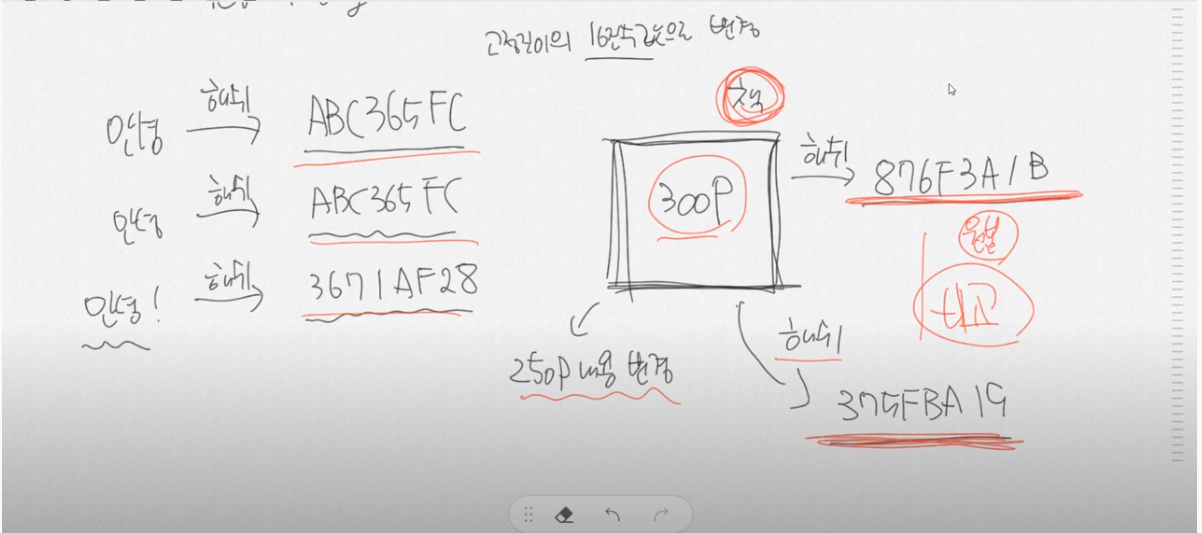 고정길이의 16진수 값으로 변경
안녕 해쉬 ABC365FC
안녕 해쉬 ABC365FC
안녕! 해쉬 3671AF28
책
300P 해쉬 876F3A1B
원본
비교
250P 내용 변경
해쉬
375FBA19